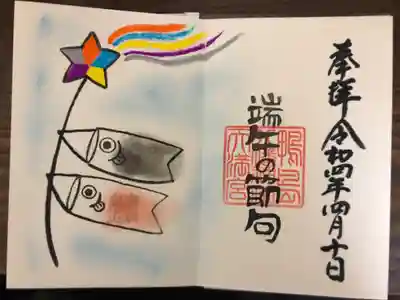 奉拝 令和四年四月十日
端午の節句
天満宮